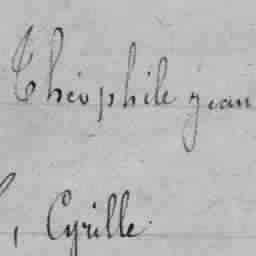 Théophile jean
, Cyrille